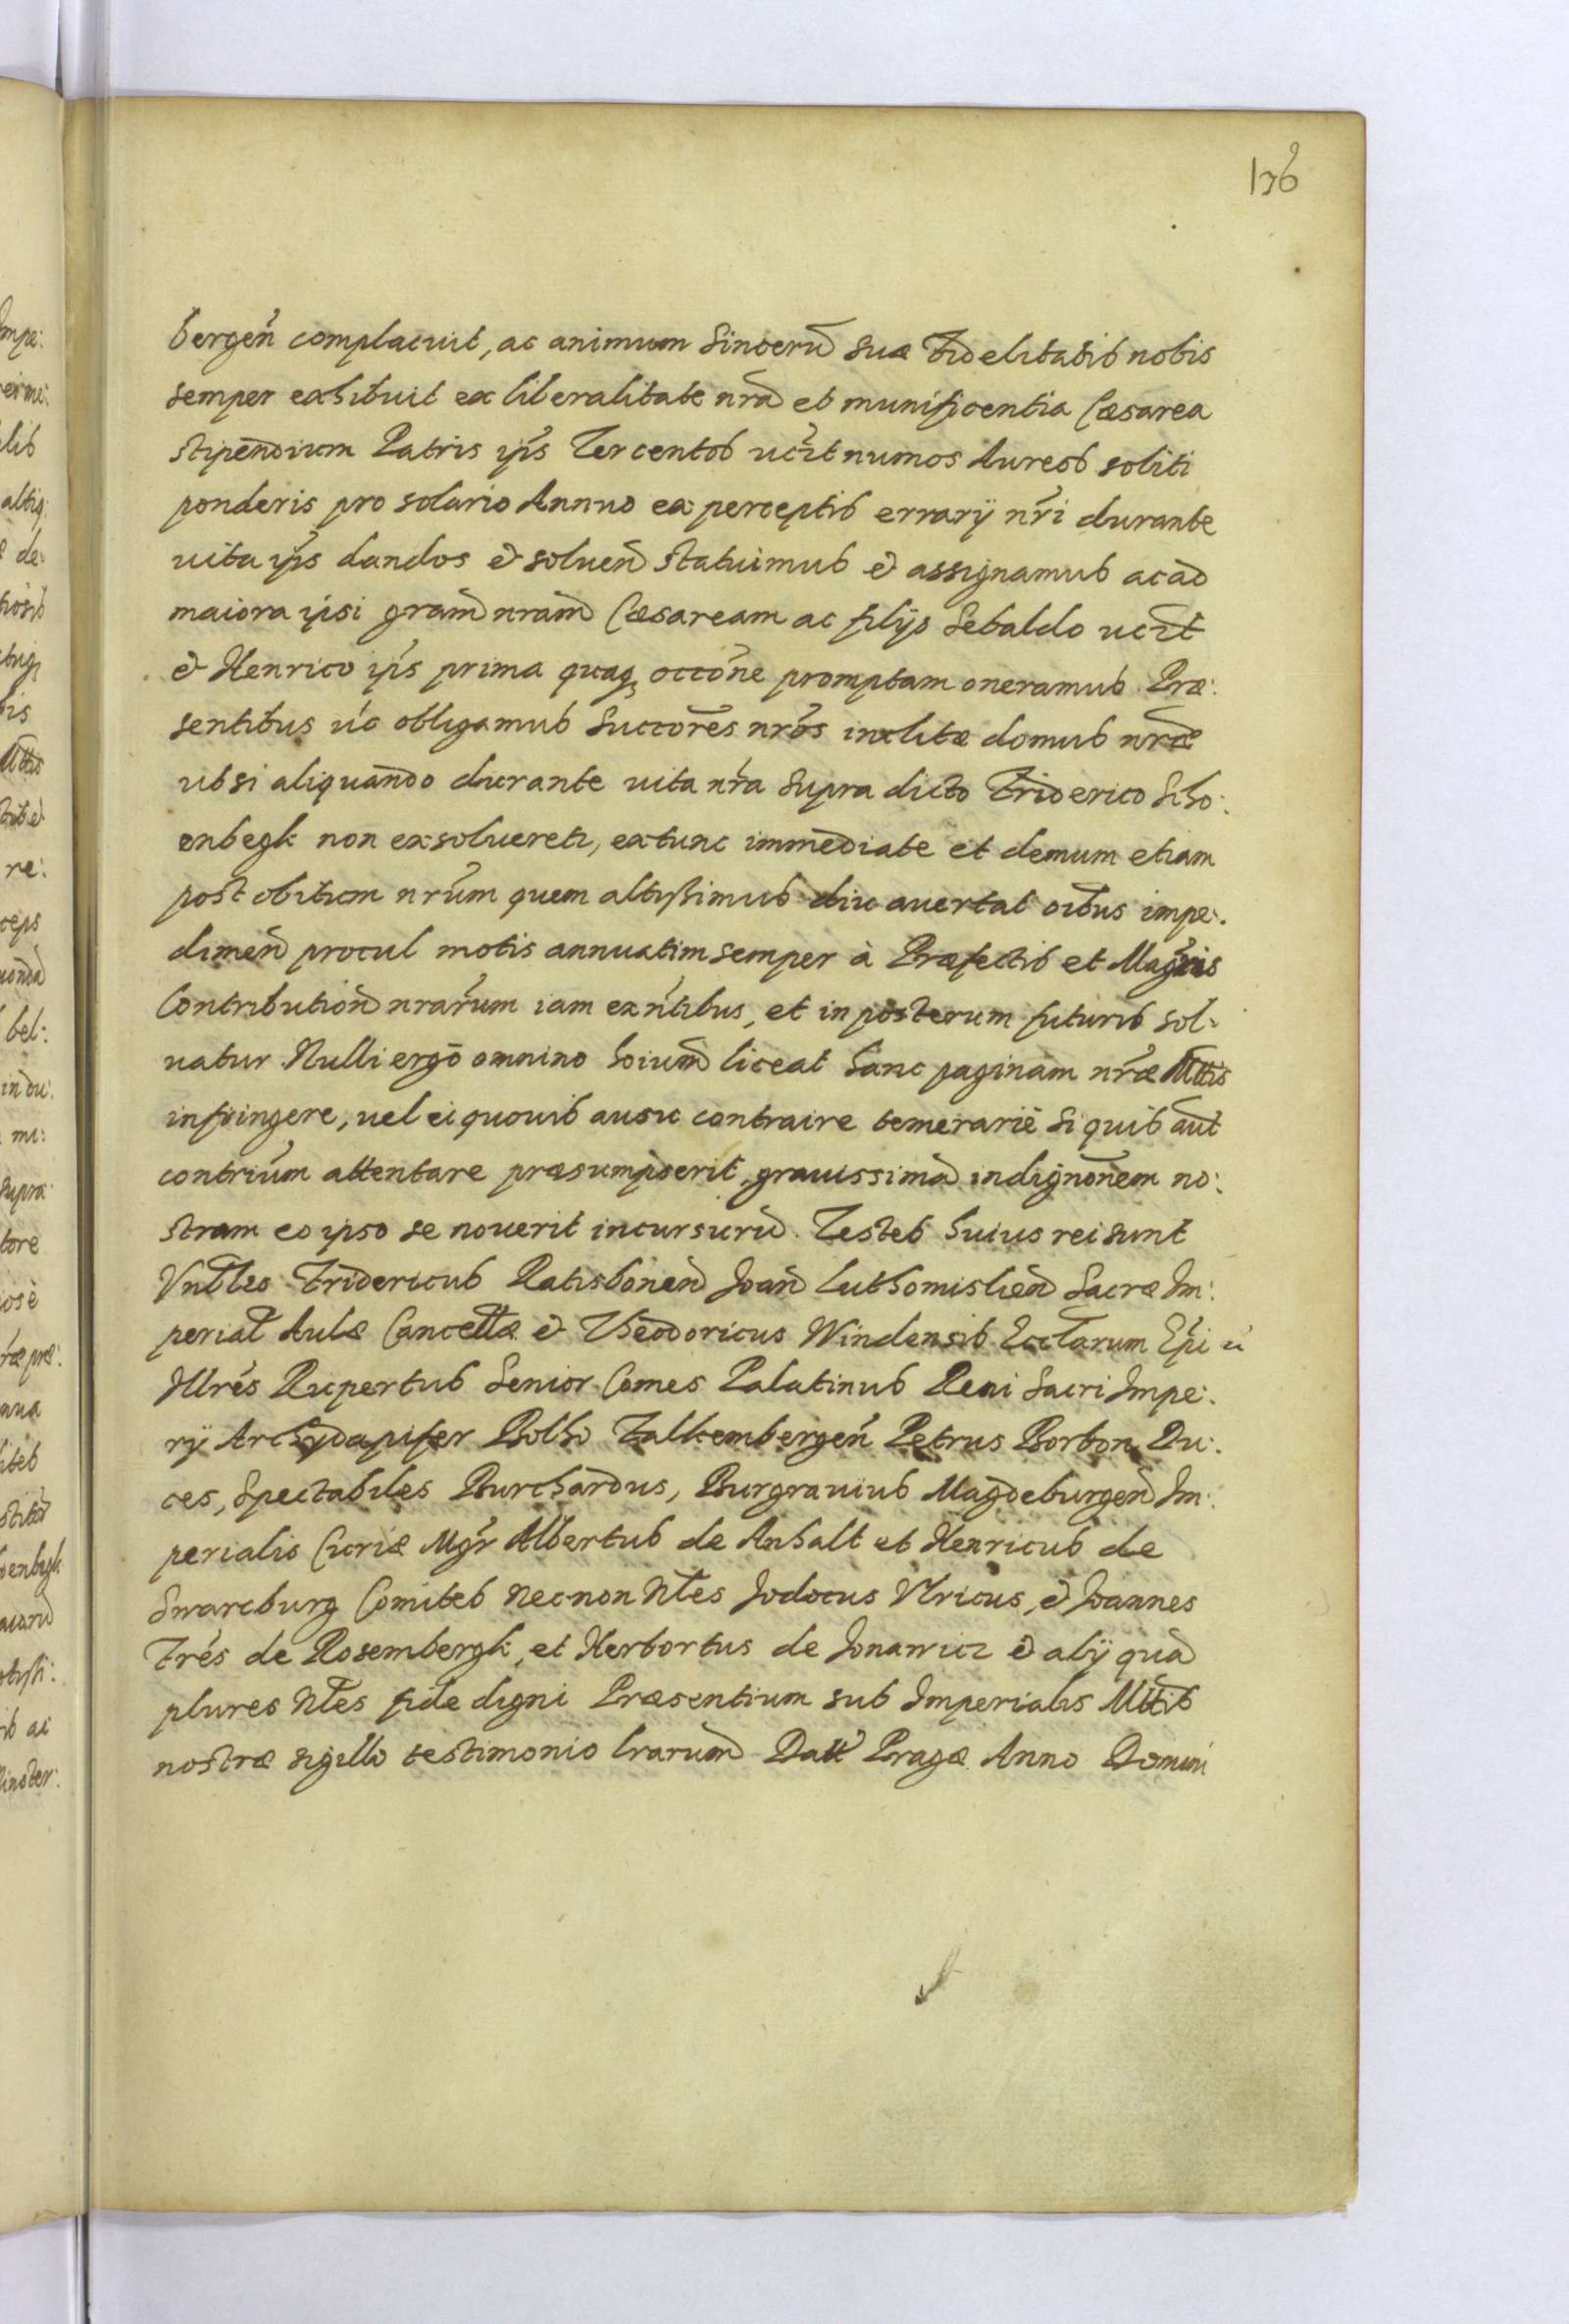 136
bergen̄ complacuit, ac animum sincerū suæ Fidelitatis nobis
semper exhibuit ex liberalitate nrā et munificentia Cæsarea
stipendium Patris ip̄s Tercentos uc̄t numos Aureos soliti
ponderis pro solario Annuo ex perceptis errarij nr̄i durante
uita ip̄s dandos & soluen̄ statuimus & assignamus ac ad
maiora ipsi gram̄ nram̄ Cæsaream ac filijs Sebaldo uc̄t
& Henrico ip̄s prima quaq; occōne promptam oneramus. Præ:
sentibus uc̄ obligamus Succōres nrōs inclitæ domus nr̄æ
ut si aliquando durante uita nr̄a supra dicto Friderico Scho:
enbegk non exsolueret̄, extunc immediate et demum etiam
post obitum nr̄um quem altissimus diu auertat oībus impe:
dimen̄ procul motis annuatim semper à Præfectis et Magr̄is
Contribution̄ nrar̄um iam exn̄tibus, et in posterum futuris sol:
uatur Nulli ergō omnino hoium̄ liceat hanc paginam nr̄æ Mttis
infringere, uel ei quouis ausu contraire temerariè Si quis aut̄
contrium̄ attentare præsumpserit, grauissimā indignōnem no:
stram eo ipso se nouerit incursurū. Testes huius rei sunt
Vnbles Fridericus Ratisbonen̄ Joan̄ Luthomislien̄ Sacræ Im:
perial̄ Aulæ Cancell̄æ & Theodoricus Windensis Eccl̄arum Ep̄i ū
Illrēs Rupertus Senior Comes Palatinus Reni Sacri Impe:
rij Archydapifer Bolho Falkembergen̄ Petrus Borbon Du:
ces, Spectabiles Burchardus, Burgrauius Magdeburgen̄ Im:
perialis Curiæ Mgr̄ Albertus de Anhalt et Henricus de
Swarcburg Comites Necnon Nl̄es Jodocus Vlricus, & Joannes
Frēs de Rosembergk, et Herbortus de Jonawicz & alij quā
plures Nl̄es fide digni Præsentium sub Imperialis Mttis
nostræ sigillo testimonio lrarum̄ Datt̄ Pragæ Anno Domini